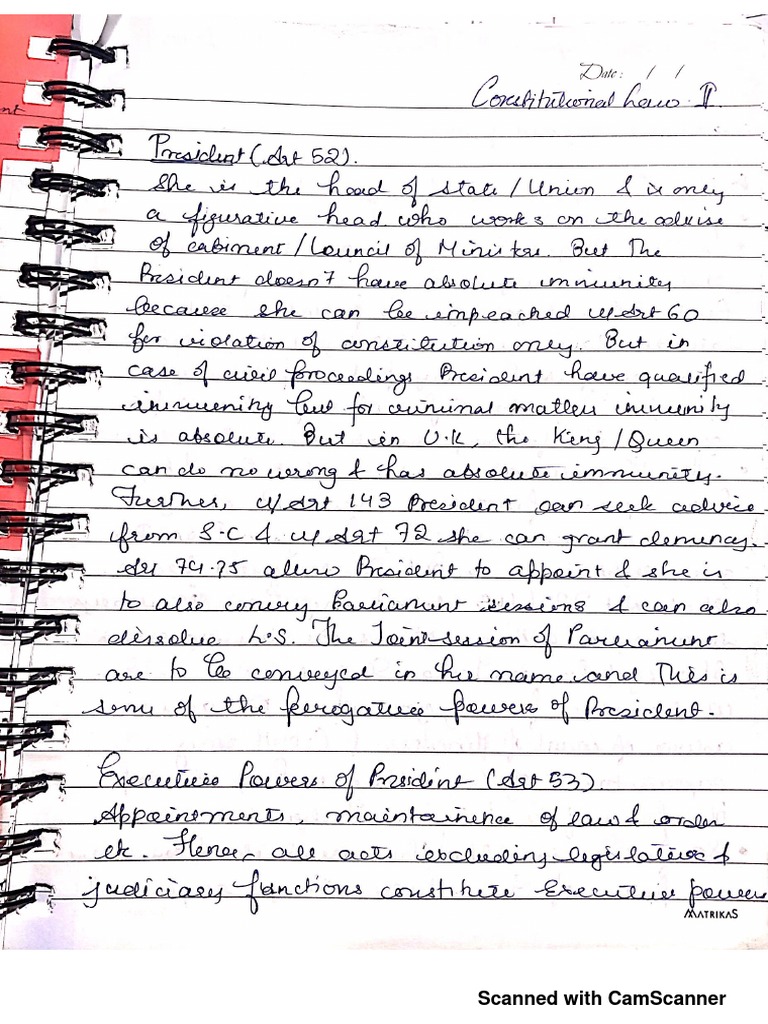 nt
Date: / /
Constitutional Law II.
President (Art 52).
She is the head of state / Union & is only
a figurative head who works on the advise
of cabiment / Council of Minister. But The
President doesn't have absolute immunity
because she can be impeached u/Art 60
for violation of constitution only. But in
case of civil proceedings President have qualified
immunity but for criminal matters immunity
is absolute. But in U.K, the King / Queen
can do no wrong & has absolute immunity.
Further, u/Art 143 President can seek advice
from S.C & u/Art 72 she can grant clemency.
Art 74.75 allow President to appoint & she is
to also convey Parliament sessions & can also
dissolve L.S. The Joint session of Parliament
are to be conveyed in her name and This is
some of the perogative powers of President.
Executive Powers of President (Art 53).
Appointments, maintainence of law & order
etc. Hence, all acts excluding legislative &
judiciary functions constitute Executive power
MATRIKAS
Scanned with CamScanner